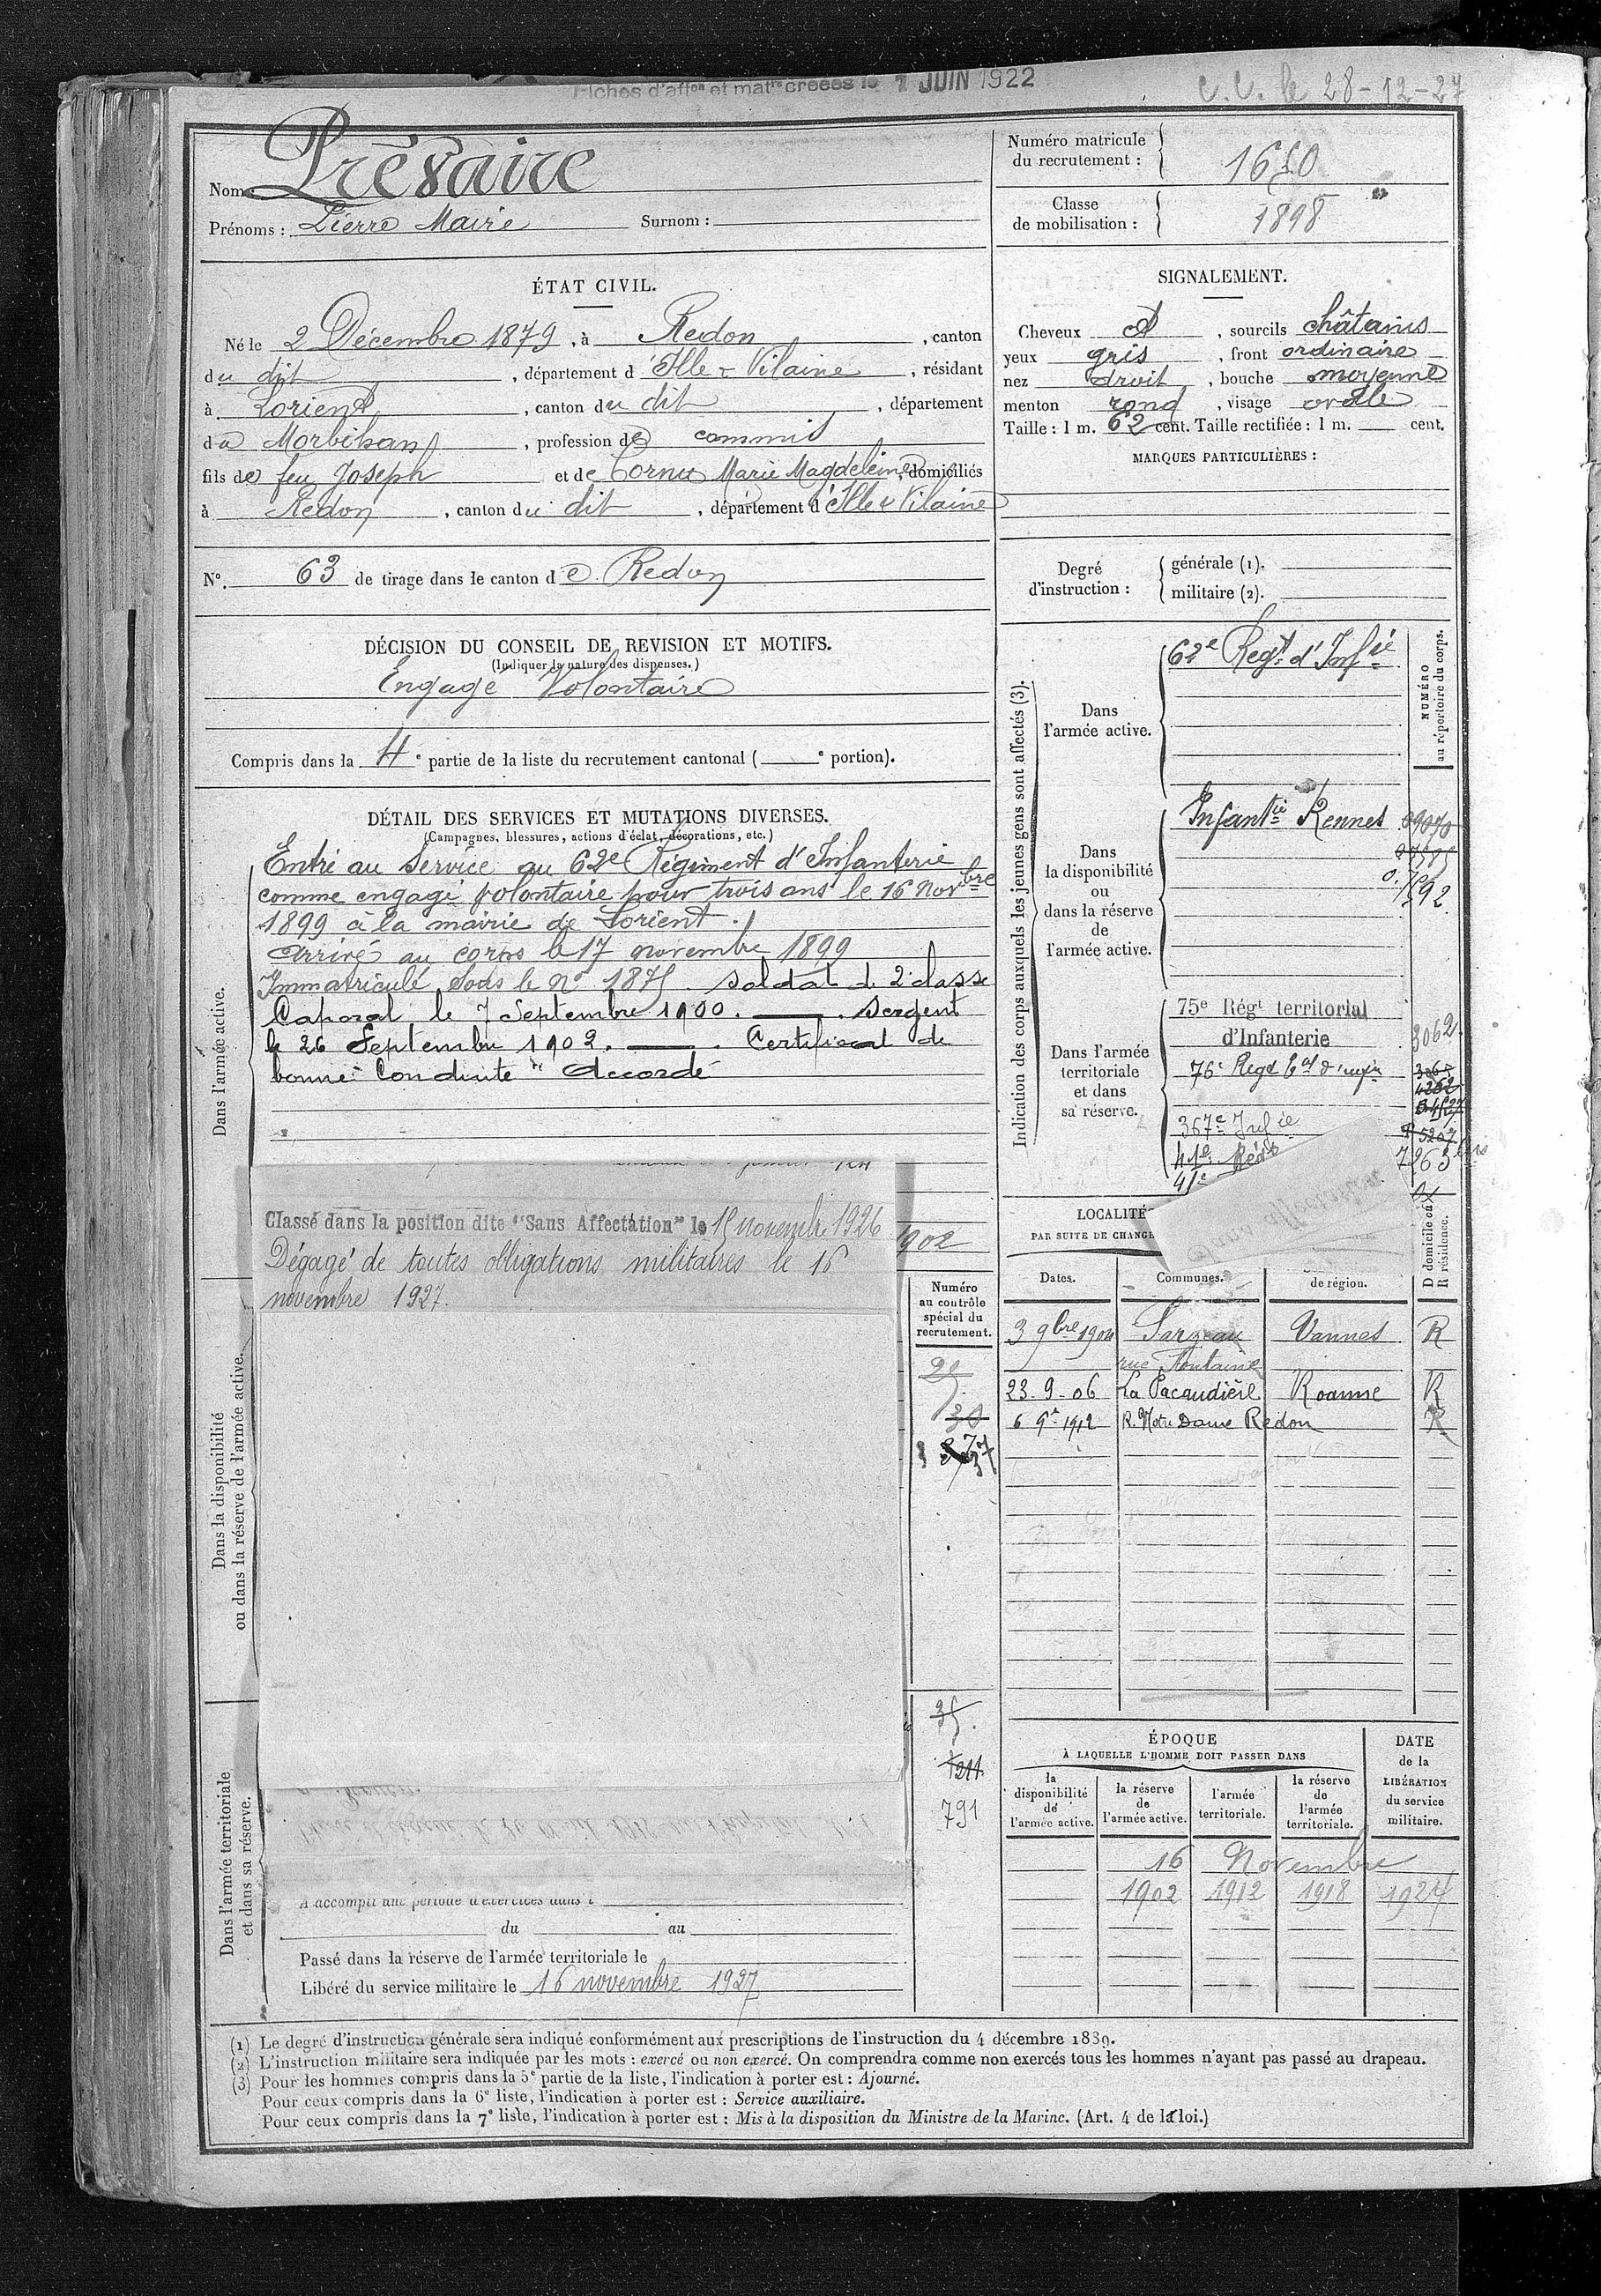 Fiches d'aff^on et mat^re créées le 1 JUIN 1922
C.C. le 28-12-27
Nom : Prévaire
Prénoms : Pierre Marie Surnom :
Numéro matricule du recrutement : 1650
Classe de mobilisation : 1898
ÉTAT CIVIL.
Né le 2 Décembre 1879, à Redon, canton
du dit, département d'Ille & Vilaine, résidant
à Lorient, canton du dit, département
du Morbihan, profession de commis
fils de feu Joseph et de Cornu Marie Magdeleine, domiciliés
à Redon, canton du dit, département d'Ille & Vilaine
N° 63 de tirage dans le canton de Redon
DÉCISION DU CONSEIL DE REVISION ET MOTIFS.
(Indiquer la nature des dispenses.)
Engagé Volontaire
Compris dans la 4e partie de la liste du recrutement cantonal ( e portion).
SIGNALEMENT.
Cheveux et, sourcils châtains
yeux gris, front ordinaire
nez droit, bouche moyenne
menton rond, visage ovale
Taille : 1 m. 62 cent. Taille rectifiée : 1 m. cent.
MARQUES PARTICULIÈRES :
Degré d'instruction :
générale (1).
militaire (2).
DÉTAIL DES SERVICES ET MUTATIONS DIVERSES.
(Campagnes, blessures, actions d'éclat, décorations, etc.)
Dans l'armée active.
Entré au service au 62e Régiment d'Infanterie
comme engagé volontaire pour trois ans le 16 Novbre
1899 à la mairie de Lorient.
Arrivé au corps le 17 novembre 1899
Immatriculé sous le n° 1875. Soldat de 2e classe
Caporal le 7 Septembre 1900. Sergent
le 26 Septembre 1902. Certificat de
bonne Conduite "Accordé"
1902
Classé dans la position dite "Sans Affectation" le 15 novembre 1926
Dégagé de toutes obligations militaires le 16
novembre 1927.
Dans la disponibilité
ou dans la réserve de l'armée active.
Numéro
au contrôle
spécial du
recrutement.
25
30
Dans l'armée territoriale
et dans sa réserve.
35.
1211
791
A accompli une période d'exercices dans l
du au
Passé dans la réserve de l'armée territoriale le
Libéré du service militaire le 16 novembre 1927
Indication des corps auxquels les jeunes gens sont affectés (3).
NUMÉRO
au répertoire du corps.
Dans
l'armée active.
62e Regt d'Infie
Dans
la disponibilité
ou
dans la réserve
de
l'armée active.
Infantie Rennes
Dans l'armée
territoriale
et dans
sa réserve.
75e Régt territorial
d'Infanterie
3062
367e Infie
5207
41e Rég
7263 bis
41e
LOCALITÉ
PAR SUITE DE CHANGE
D domicile ou
R résidence.
Dates.
Communes.
de région.
3 9bre 1904 Sarzeau Vannes R
rue Fontaine
23-9-06 La Pacaudière Roanne R
6 9e 1912 R. Notre Dame Redon R
ÉPOQUE
À LAQUELLE L'HOMME DOIT PASSER DANS
la disponibilité de l'armée active.
la réserve de l'armée active.
l'armée territoriale.
la réserve de l'armée territoriale.
DATE de la LIBÉRATION du service militaire.
16 Novembre
1902 1912 1918 1924
(1) Le degré d'instruction générale sera indiqué conformément aux prescriptions de l'instruction du 4 décembre 1889.
(2) L'instruction militaire sera indiquée par les mots : exercé ou non exercé. On comprendra comme non exercés tous les hommes n'ayant pas passé au drapeau.
(3) Pour les hommes compris dans la 5e partie de la liste, l'indication à porter est : Ajourné.
Pour ceux compris dans la 6e liste, l'indication à porter est : Service auxiliaire.
Pour ceux compris dans la 7e liste, l'indication à porter est : Mis à la disposition du Ministre de la Marine. (Art. 4 de la loi.)